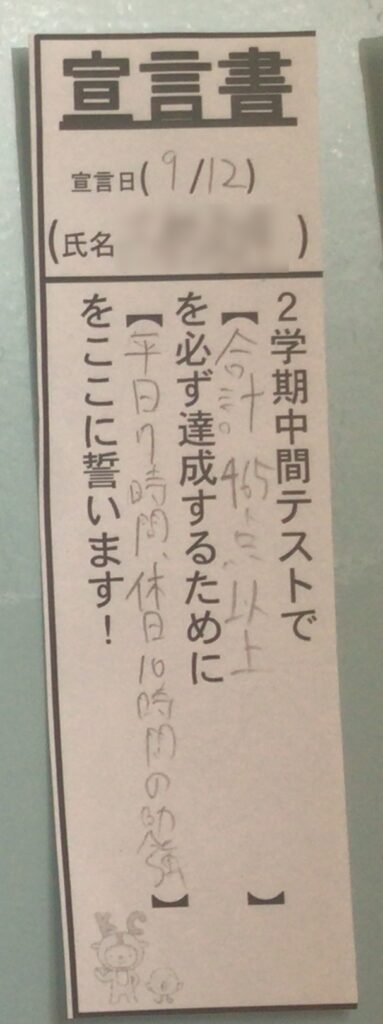 宣言書
宣言日(9/12)
(氏名 )
2学期中間テストで
【合計465点以上】
を必ず達成するために
【平日7時間、休日10時間の勉強】
をここに誓います!
KC